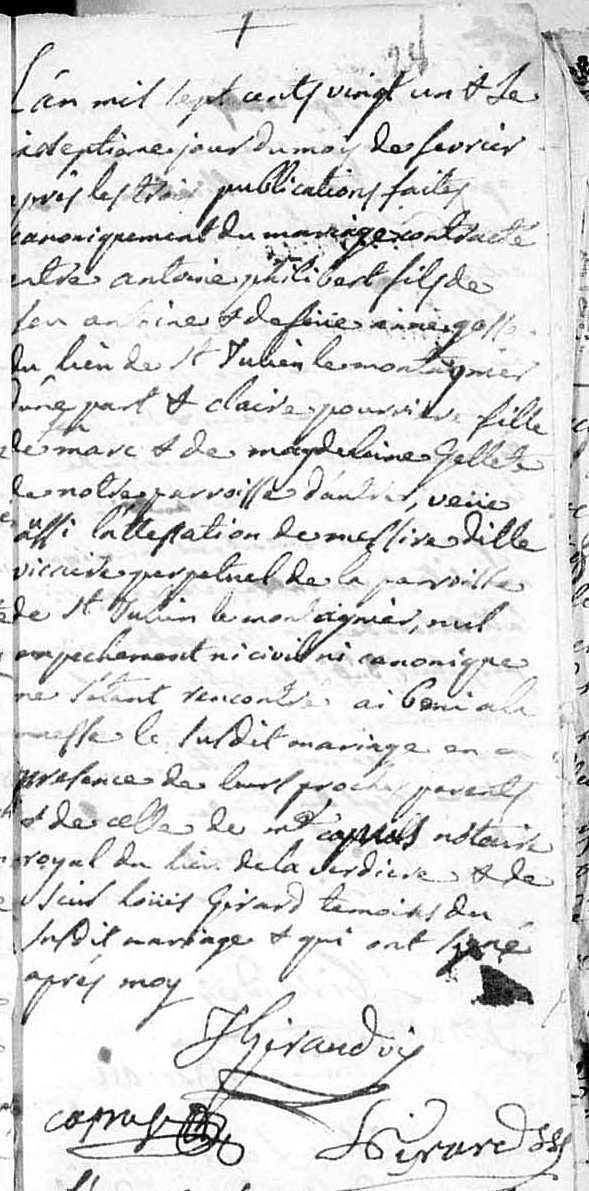 24
L'an mil sept cents vingt un & le
dixseptieme jour du mois de fevrier
après les trois publications faites
canoniquement du mariage contracté
entre antoine philibert fils de
feu antoine & de feüe anne gasse
du lieu de St Julien le montagnier
d'une part & claire pourriere fille
de marc & de magdelaine Gellete
de notre parroisse d'autre, veüe
aussi l'attestation de messire dille
vicaire perpetuel de la parroisse
de St Julien le montagnier, nul
empechement ni civil ni canonique
ne s'etant rencontré ai beni a la
messe le susdit mariage en
presence de leurs proches parents
& de celle de mr notaire
royal du lieu de la verdiere & de
sieur Loüis Girard temoins du
susdit mariage & qui ont signé
après moy
Giraud vic
Girard